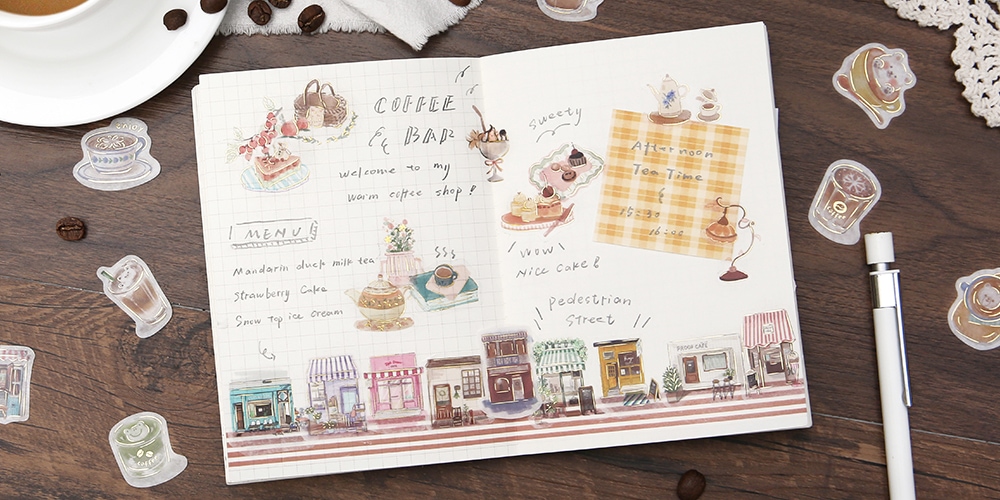 COFFEE
& BAR
welcome to my
warm coffee shop!
MENU
Mandarin duck milk tea
Strawberry Cake
Snow Top ice cream
sweety
WOW
Nice Cake!
Afternoon
Tea Time
&
15:30
16:00
pedestrian
Street